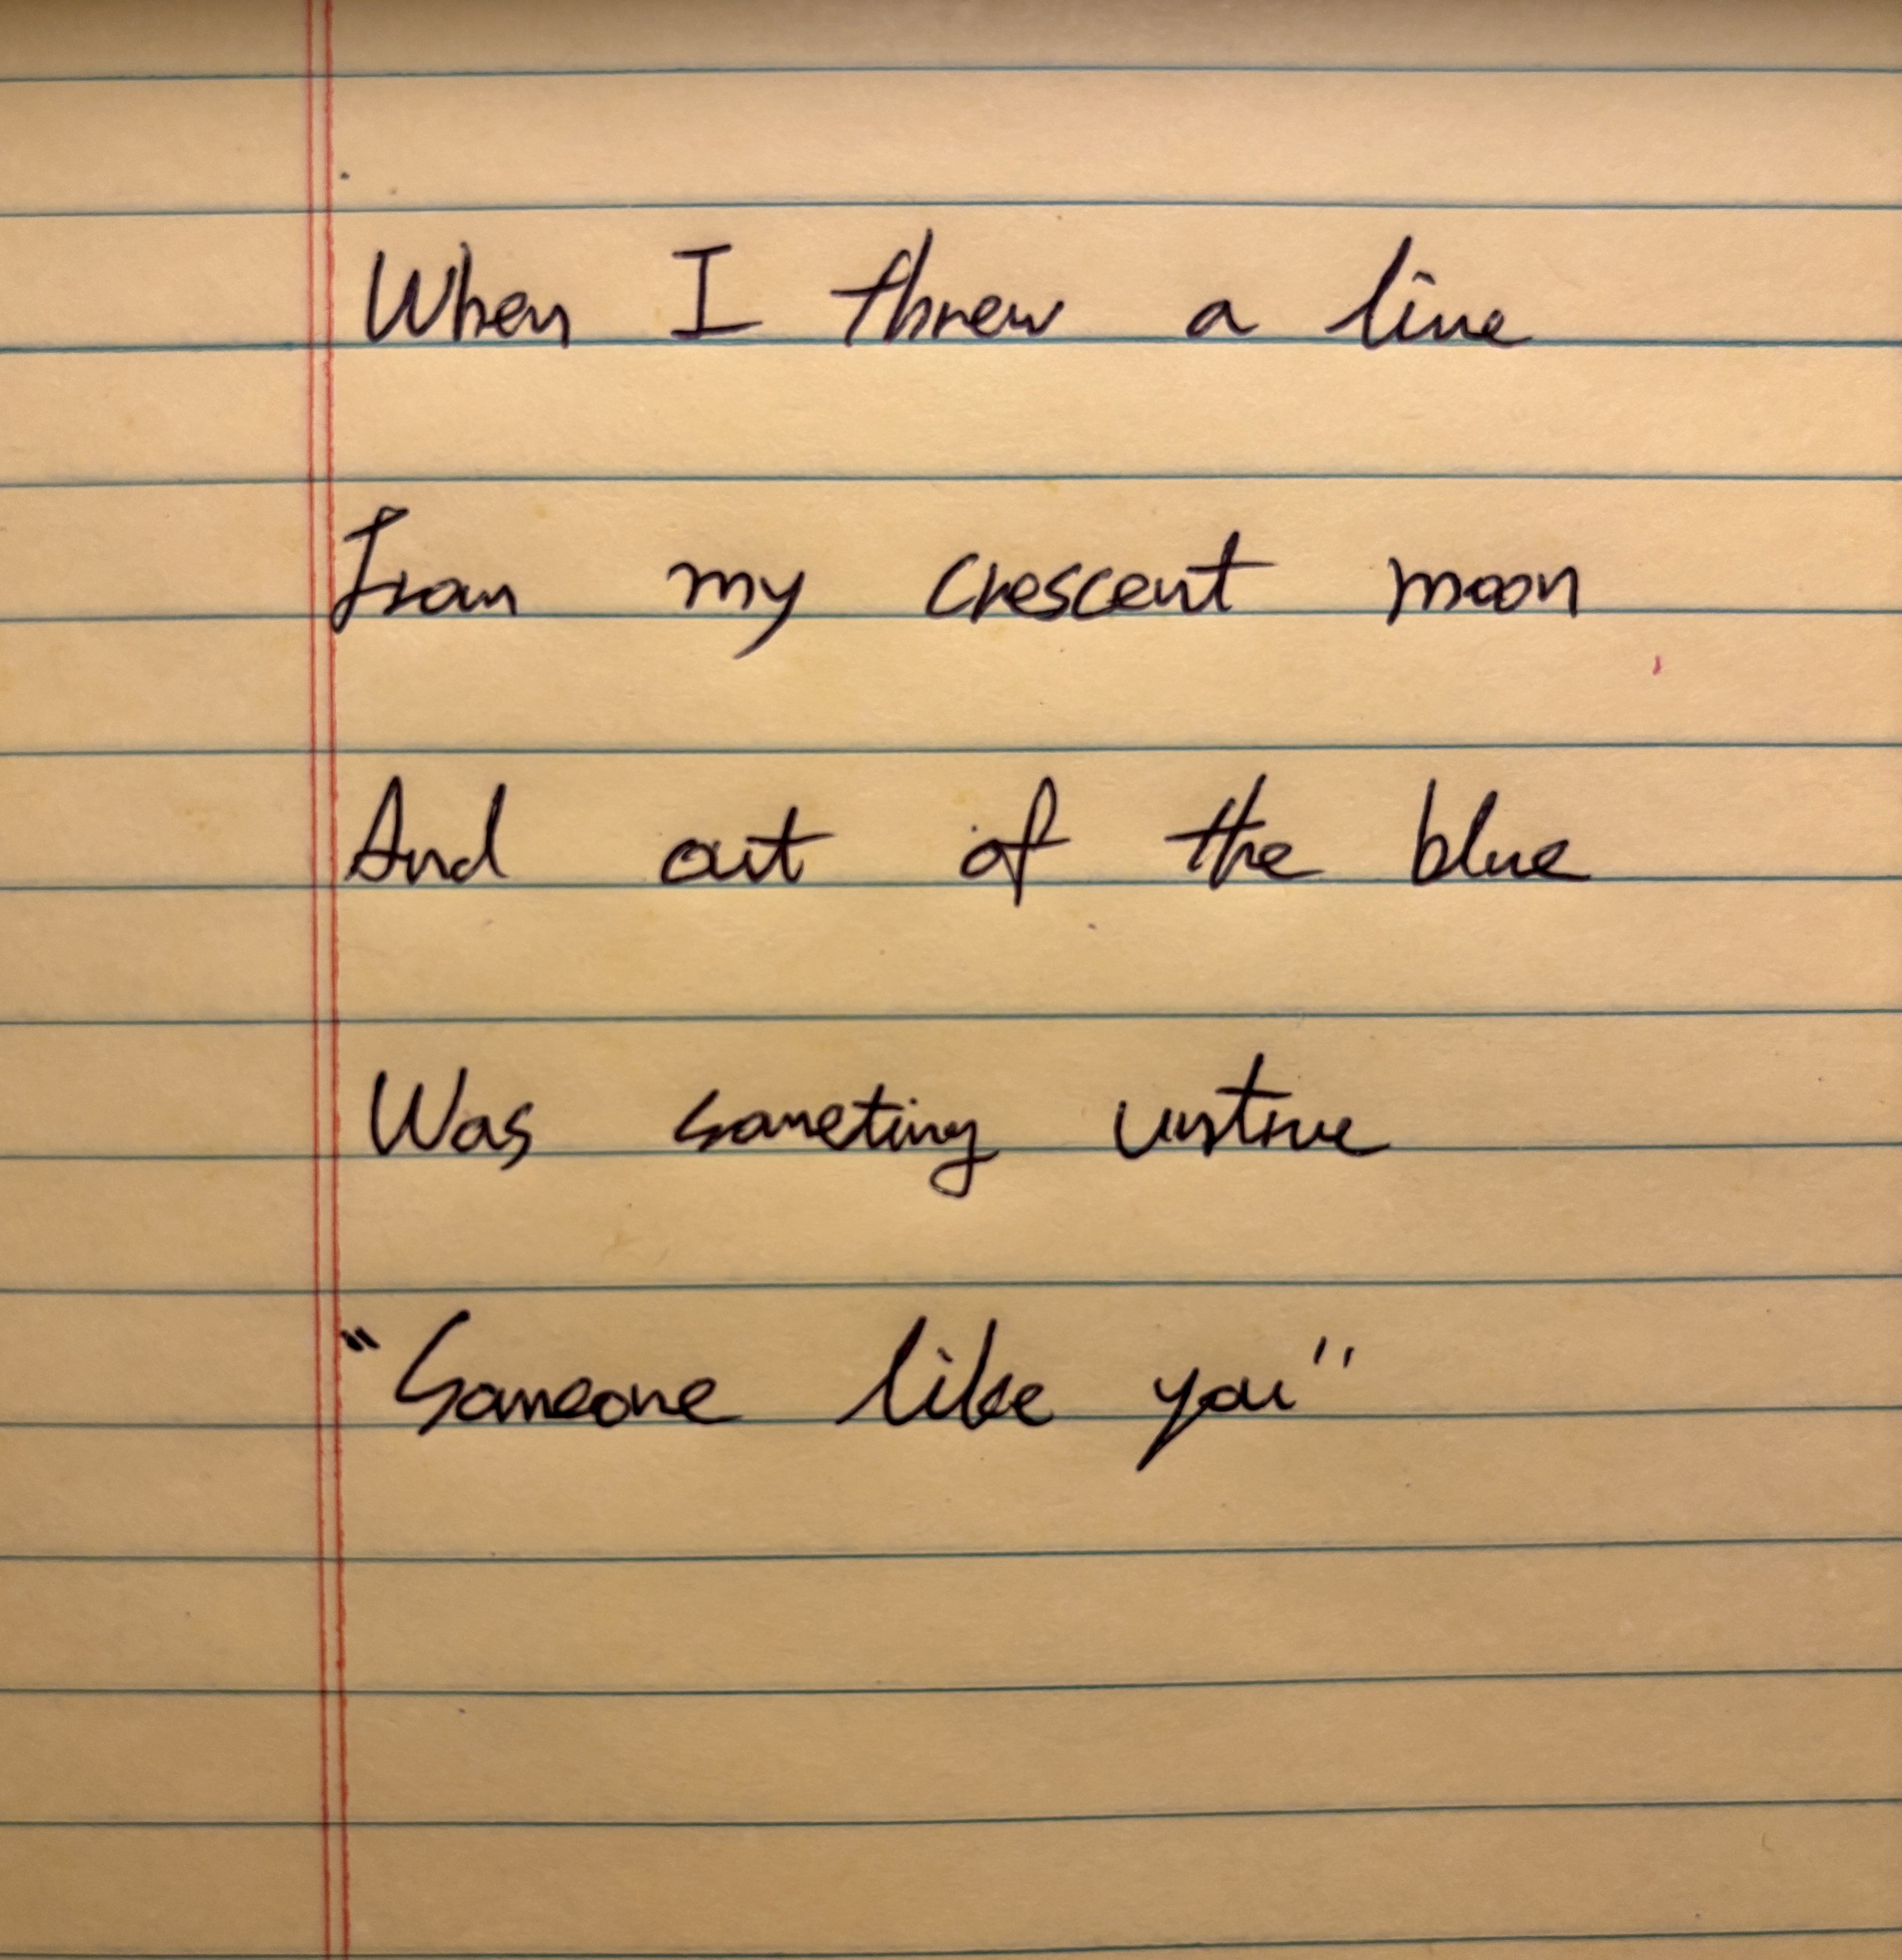 When I threw a line
From my crescent moon
And out of the blue
Was someting untrue
"Someone like you"